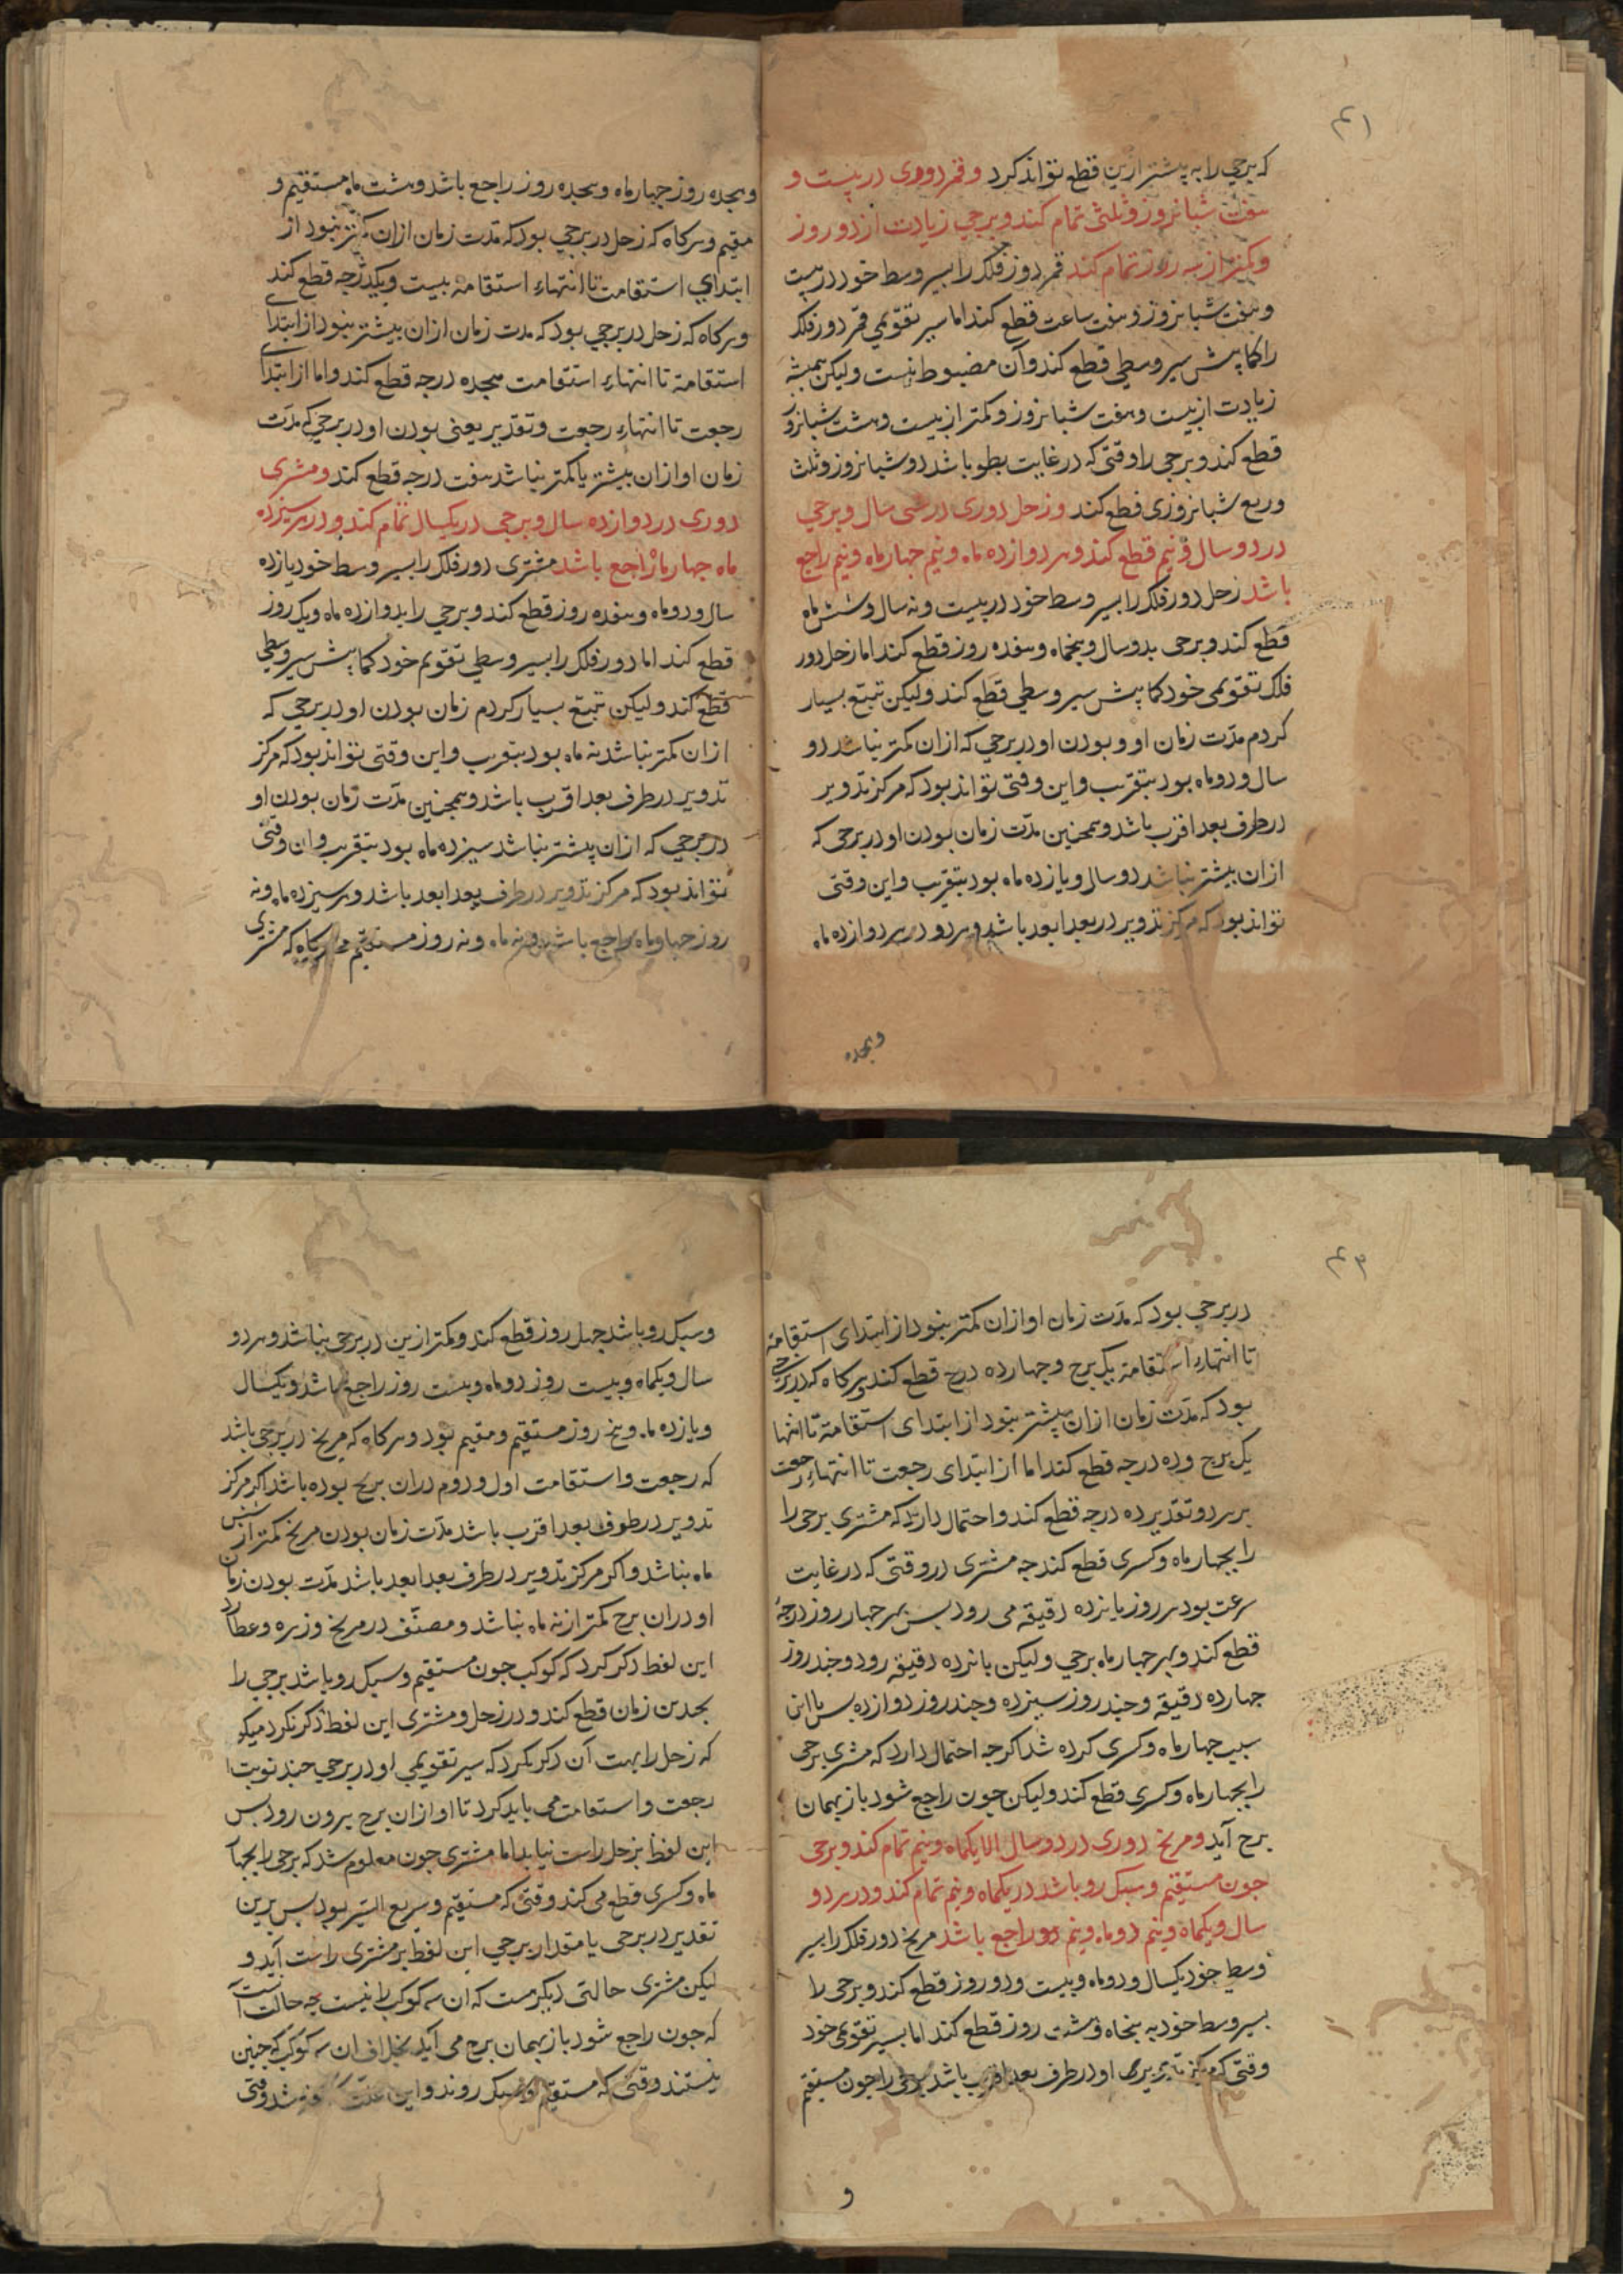 ۴۱
که برجی را به پیشتر ازین قطع تواند کرد و قمر دوری در بیست و
هفت شبانروز و ثلثی تمام کند و برجی زیادت از دو روز
و کمتر از سه روز تمام کند قمر دور فلک را بسیر وسط خود در بیست
و هفت شبانروز و هفت ساعت قطع کند اما سیر تقویمی قمر دور فلک
را کما بیش سیر وسطی قطع کند و آن مضبوط نیست ولیکن همیشه
زیادت از بیست و هفت شبانروز و کمتر از بیست و هشت شبانروز
قطع کند و برجی را وقتی که در غایت بطو باشد دو شبانروز و ثلث
و ربع شبانروزی قطع کند و زحل دوری در سی سال و برجی
در دو سال و نیم قطع کند و هر دوازده ماه و نیم چهار ماه و نیم راجع
باشد زحل دور فلک را بسیر وسط خود در بیست و نه سال و شش ماه
قطع کند و برجی بدو سال و پنجماه و هفده روز قطع کند اما زحل دور
فلک تقویمی خود کما بیش سیر وسطی قطع کند ولیکن تتبع بسیار
کردم مدت زمان او و بودن او در برجی که ازان کمتر نباشد دو
سال و دو ماه بود بتقریب و این وقتی تواند بود که مرکز تدویر
در طرف بعد اقرب باشد و همچنین مدت زمان بودن او در برجی که
ازان بیشتر نباشد دو سال و یازده ماه بود بتقریب و این وقتی
تواند بود که مرکز تدویر در بعد ابعد باشد و هر دو در هر دوازده ماه
وهجده
وهجده روز چهار ماه وهجده روز راجع باشد و هشت ماه مستقیم و
مقیم و هرکاه که زحل در برجی بود که مدت زمان ازان کمتر نبود از
ابتدای استقامت تا انتهاء استقامة بیست و یکدرجه قطع کند
و هرکاه که زحل در برجی بود که مدت زمان ازان بیشتر نبود از ابتدا
استقامة تا انتهاء استقامت هجده درجه قطع کند و اما از ابتداء
رجعت تا انتهاء رجعت و تقدیر یعنی بودن او در برجی که مدت
زمان او ازان بیشتر یا کمتر نباشد هفت درجه قطع کند و مشتری
دوری در دوازده سال و برجی در یکسال تمام کند و در هر سیزده
ماه چهار ماه راجع باشد مشتری دور فلک را بسیر وسط خود یازده
سال و دو ماه و هفده روز قطع کند و برجی را بدوازده ماه و یک روز
قطع کند اما دور فلک را بسیر وسطی تقویم خود کما بیش سیر وسطی
قطع کند ولیکن تتبع بسیار کردم زمان بودن او در برجی که
ازان کمتر نباشد نه ماه بود بتقریب و این وقتی تواند بود که مرکز
تدویر در طرف بعد اقرب باشد و همچنین مدت زمان بودن او
در برجی که ازان بیشتر نباشد سیزده ماه بود بتقریب و ان وقتی
تواند بود که مرکز تدویر در طرف بعد ابعد باشد و هر سیزده ماه و نه
روز چهار ماه راجع باشد و نه ماه و نه روز مستقیم و هرکاه که مشتری
۴۲
در برجی بود که مدت زمان او ازان کمتر نبود از ابتدای استقامة
تا انتهاء استقامة یک برج و چهارده درج قطع کند و هرکاه که در برجی
بود که مدت زمان ازان بیشتر نبود از ابتدای استقامة تا انتها
یک برج و ده درجه قطع کند اما از ابتدای رجعت تا انتهاء رجعت
بر هر دو تقدیر ده درجه قطع کند و احتمال دارد که مشتری برجی را
را بچهار ماه و کسری قطع کند چه مشتری در وقتی که در غایت
سرعت بود هر روز پانزده دقیقه می رود پس بهر چهار روز درجه
قطع کند و بهر چهار ماه برجی ولیکن پانزده دقیقه رود و چند روز
چهارده دقیقه و چند روز سیزده و چند روز دوازده پس باین
سبب چهار ماه و کسری کرده شد اکرچه احتمال دارد که مشتری برجی
را بچهار ماه و کسری قطع کند ولیکن چون راجع شود باز بهمان
برج آید و مریخ دوری در دو سال الا یکماه و نیم تمام کند و برجی
چون مستقیم و سبک رو باشد در یکماه و نیم تمام کند و در هر دو
سال و یکماه و نیم دو ماه و نیم راجع باشد مریخ دور فلک را بسیر
وسط خود یکسال و دو ماه و بیست و دو روز قطع کند و برجی را
بسیر وسط خود به پنجاه و هشت روز قطع کند اما بسیر تقویمی خود
وقتی که مرکز تدویر او در طرف بعد اقرب باشد برجی را چون مستقیم
و
و سبک رو باشد چهل روز قطع کند و کمتر ازین در برجی نباشد و هر دو
سال و یکماه و بیست روز دو ماه و بیست روز راجع باشد و یکسال
و یازده ماه و پنج روز مستقیم و مقیم بود و هرکاه که مریخ در برجی باشد
که رجعت و استقامت اول و دوم دران برج بوده باشد اکر مرکز
تدویر در طرف بعد اقرب باشد مدت زمان بودن مریخ کمتر از شش
ماه نباشد و اکر مرکز تدویر در طرف بعد ابعد باشد مدت بودن زمان
او دران برج کمتر از نه ماه نباشد و مصنف در مریخ و زهره و عطارد
این لفظ ذکر کرد که کوکب چون مستقیم و سبک رو باشد برجی را
بچندین زمان قطع کند و در زحل و مشتری این لفظ ذکر نکرد میکو
که زحل را بهت آن ذکر نکرد که سیر تقویمی او در برجی چند نوبت
رجعت و استقامت می باید کرد تا او ازان برج بیرون رود پس
این لفظ بزحل راست نیاید اما مشتری چون معلوم شد که برجی را بچها
ماه و کسری قطع می کند وقتی که مستقیم و سریع السیر بود پس برین
تقدیر در برجی یا مقدار برجی این لفظ بر مشتری راست آید و
لیکن مشتری حالتی دیکرست که ان سه کوکب را نیست چه حالت آنست
که چون راجع شود باز بهمان برج می آید بخلاف ان سه کوکب که چنین
نیستند وقتی که مستقیم و سبک روند و این علت کفته شد وقتی